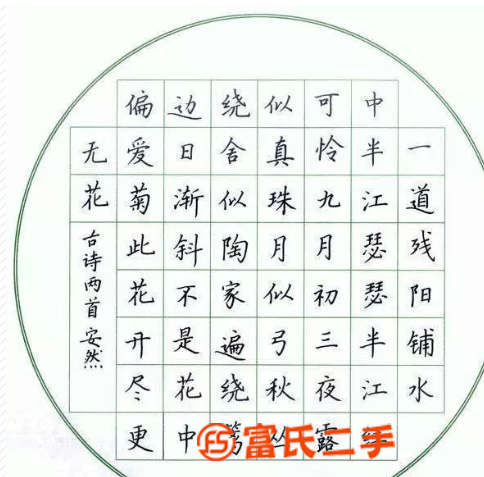 一道残阳铺水
中半江瑟瑟半江
可怜九月初三夜露
似真珠月似弓秋丛
绕舍似陶家遍绕
边日渐斜不是花中
偏爱菊此花开尽更
无花
古诗两首安然
富氏二手